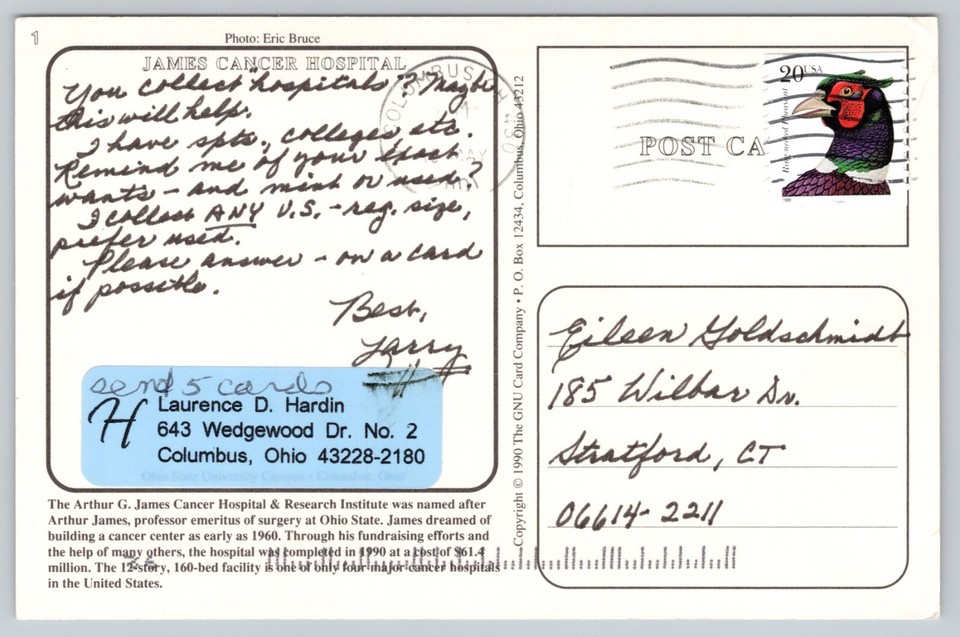 1
Photo: Eric Bruce
JAMES CANCER HOSPITAL
You collect "hospitals"? Maybe
this will help.
I have spts., colleges etc.
Remind me of your exact
wants - and mint or used?
I collect ANY U.S. - reg. size,
prefer used.
Please answer - on a card
if possible.
Best,
Larry
send 5 cards
H
Laurence D. Hardin
643 Wedgewood Dr. No. 2
Columbus, Ohio 43228-2180
Ohio State University Campus • Columbus, Ohio
The Arthur G. James Cancer Hospital & Research Institute was named after
Arthur James, professor emeritus of surgery at Ohio State. James dreamed of
building a cancer center as early as 1960. Through his fundraising efforts and
the help of many others, the hospital was completed in 1990 at a cost of $61.4
million. The 12-story, 160-bed facility is one of only four major cancer hospitals
in the United States.
Copyright © 1990 The GNU Card Company • P. O. Box 12434, Columbus, Ohio 43212
COLUMBUS OH
MAY
POST CA
20USA
Ring-necked Pheasant
1998
Eileen Goldschmidt
185 Wilbar Dr.
Stratford, CT
06614-2211